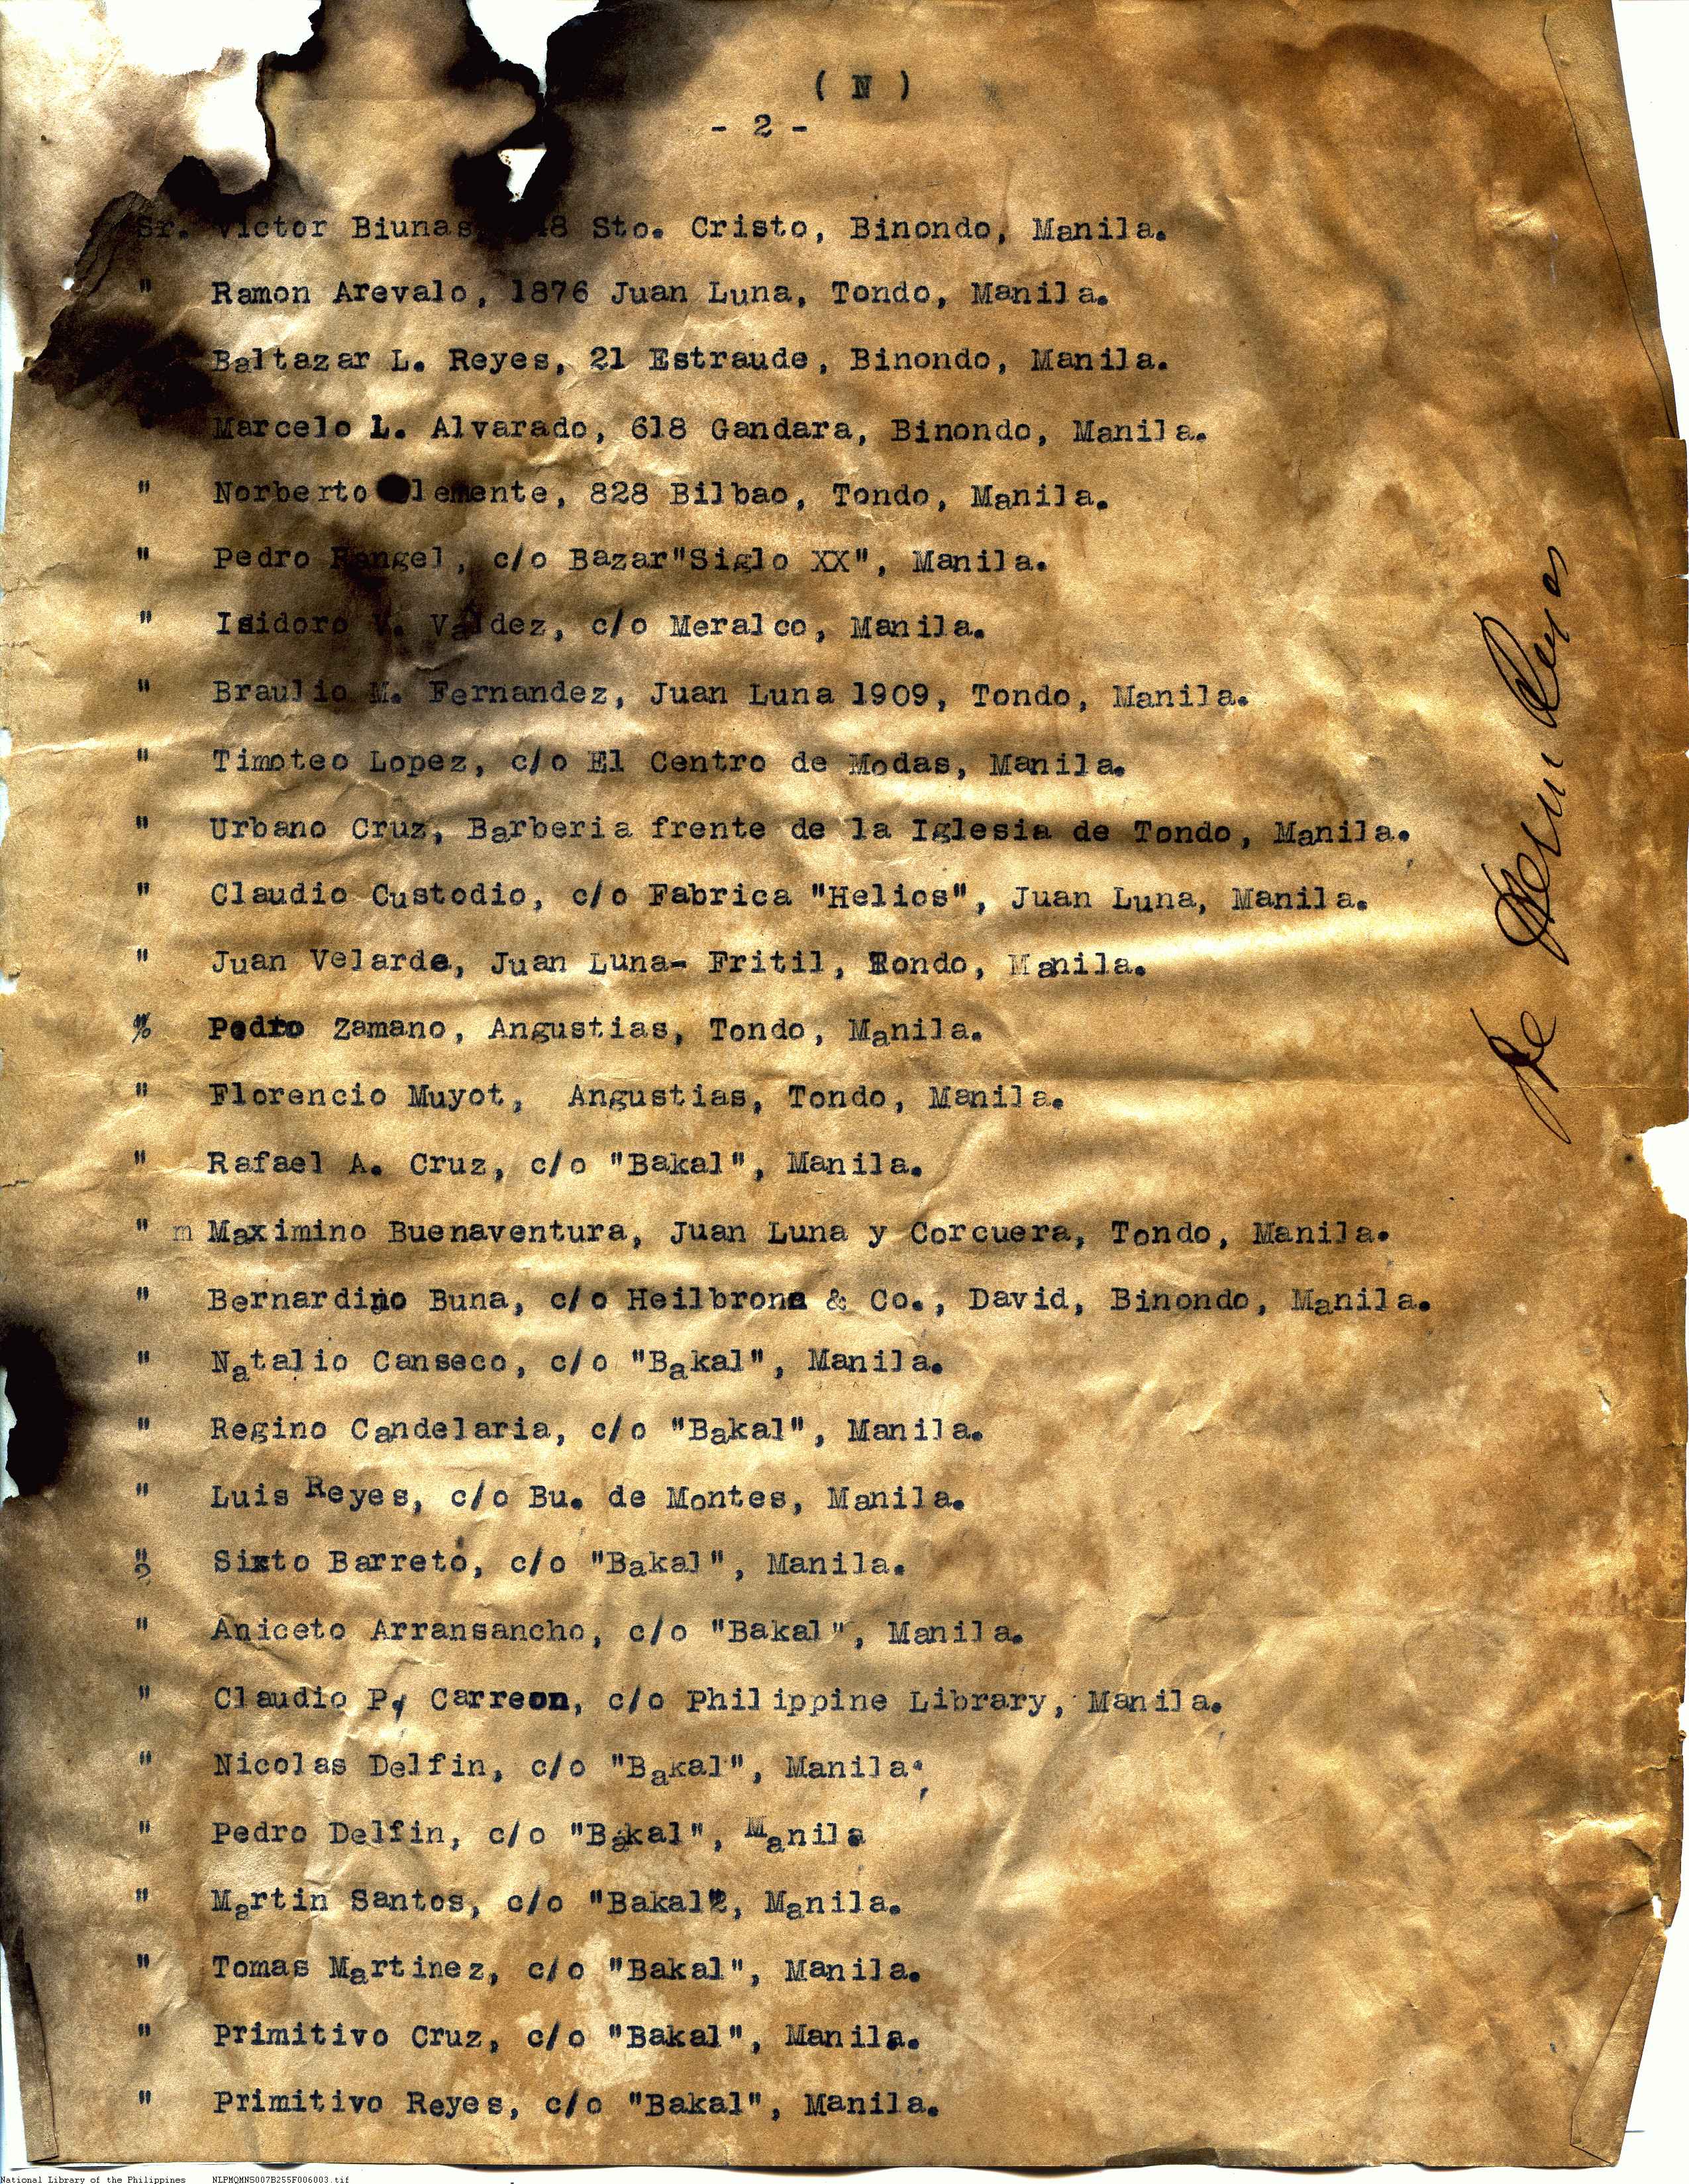 ( N )
- 2 -
Sr. Victor Biunas, 8 Sto. Cristo, Binondo, Manila.
" Ramon Arevalo, 1876 Juan Luna, Tondo, Manila.
Baltazar L. Reyes, 21 Estraude, Binondo, Manila.
Marcelo L. Alvarado, 618 Gandara, Binondo, Manila.
" Norberto lemente, 828 Bilbao, Tondo, Manila.
" Pedro Rangel, c/o Bazar"Siglo XX", Manila.
" Isidoro V. Valdez, c/o Meralco, Manila.
" Braulio M. Fernandez, Juan Luna 1909, Tondo, Manila.
" Timoteo Lopez, c/o El Centro de Modas, Manila.
" Urbano Cruz, Barberia frente de la Iglesia de Tondo, Manila.
" Claudio Custodio, c/o Fabrica "Helios", Juan Luna, Manila.
" Juan Velarde, Juan Luna- Pritil, Tondo, Manila.
% Pedro Zamano, Angustias, Tondo, Manila.
" Florencio Muyot, Angustias, Tondo, Manila.
" Rafael A. Cruz, c/o "Bakal", Manila.
" m Maximino Buenaventura, Juan Luna y Corcuera, Tondo, Manila.
" Bernardino Buna, c/o Heilbronn & Co., David, Binondo, Manila.
" Natalio Canseco, c/o "Bakal", Manila.
" Regino Candelaria, c/o "Bakal", Manila.
" Luis Reyes, c/o Bu. de Montes, Manila.
" Sixto Barreto, c/o "Bakal", Manila.
" Aniceto Arransancho, c/o "Bakal", Manila.
" Claudio P. Carreon, c/o Philippine Library, Manila.
" Nicolas Delfin, c/o "Bakal", Manila.
" Pedro Delfin, c/o "Bakal", Manila
" Martin Santos, c/o "Bakal", Manila.
" Tomas Martinez, c/o "Bakal", Manila.
" Primitivo Cruz, c/o "Bakal", Manila.
" Primitivo Reyes, c/o "Bakal", Manila.
National Library of the Philippines NLPMQMNS007B255F006003.tif